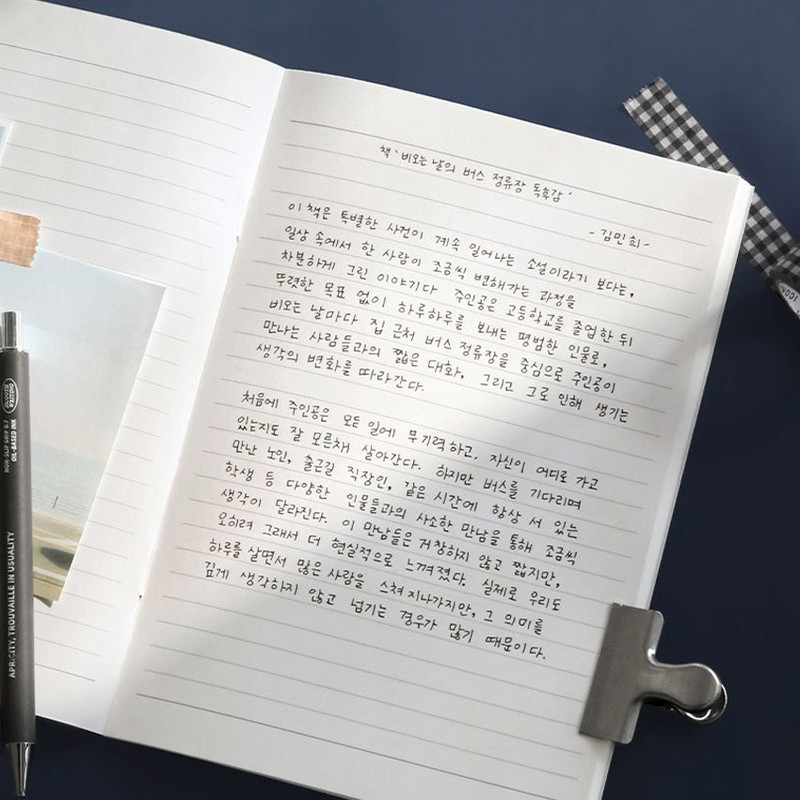 책 '비오는 날의 버스 정류장 독후감'
- 김민희 -
이 책은 특별한 사건이 계속 일어나는 소설이라기 보다는,
일상 속에서 한 사람이 조금씩 변해가는 과정을
차분하게 그린 이야기다 주인공은 고등학교를 졸업한 뒤
뚜렷한 목표 없이 하루하루를 보내는 평범한 인물로,
비오는 날마다 집 근처 버스 정류장을 중심으로 주인공이
만나는 사람들과의 짧은 대화, 그리고 그로 인해 생기는
생각의 변화를 따라간다.
처음에 주인공은 모든 일에 무기력하고, 자신이 어디로 가고
있는지도 잘 모른채 살아간다. 하지만 버스를 기다리며
만난 노인, 출근길 직장인, 같은 시간에 항상 서 있는
학생 등 다양한 인물들과의 사소한 만남을 통해 조금씩
생각이 달라진다. 이 만남들은 거창하지 않고 짧지만,
오히려 그래서 더 현실적으로 느껴졌다. 실제로 우리도
하루를 살면서 많은 사람을 스쳐 지나가지만, 그 의미를
깊게 생각하지 않고 넘기는 경우가 많기 때문이다.
NON-SLIP GRIP 0.7
OIL-BASED INK
APRICITY, TROUVAILLE IN USUALITY